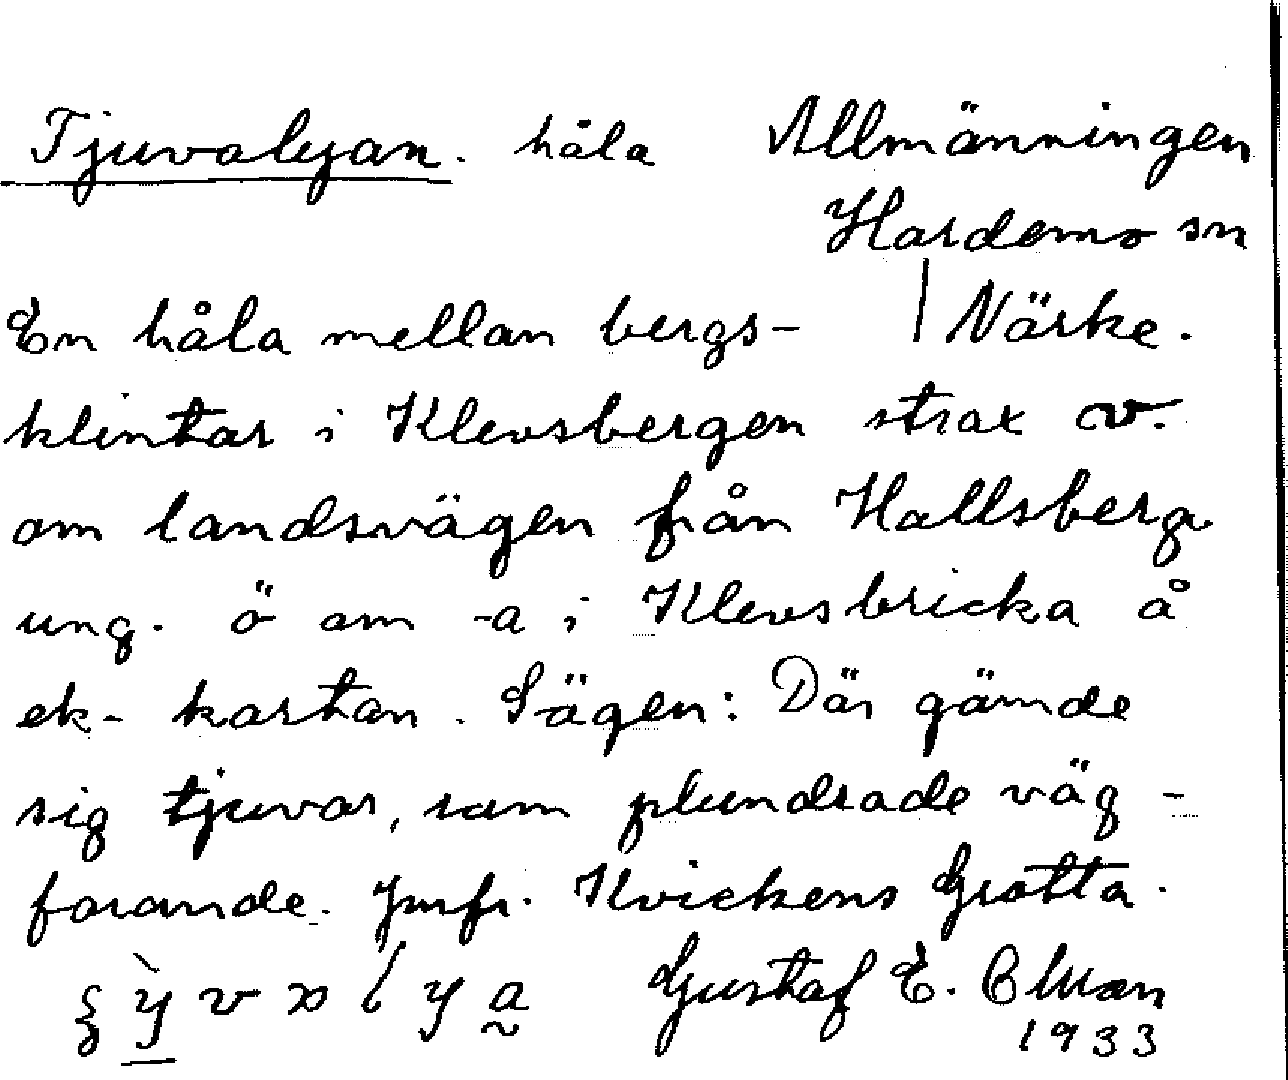 Tjuvalyan. håla Allmänningen
Hardemo sn
En håla mellan bergs- | Närke.
klintar i Klevsbergen strax v.
om landsvägen från Hallsberg
ung. ö om -a i Klevsbricka å
ek- kartan. Sägen: Där gämde
sig tjuvar, som plundrade väg-
farande. Jmfr. Kvickens Grotta.
Gustaf E.
1933